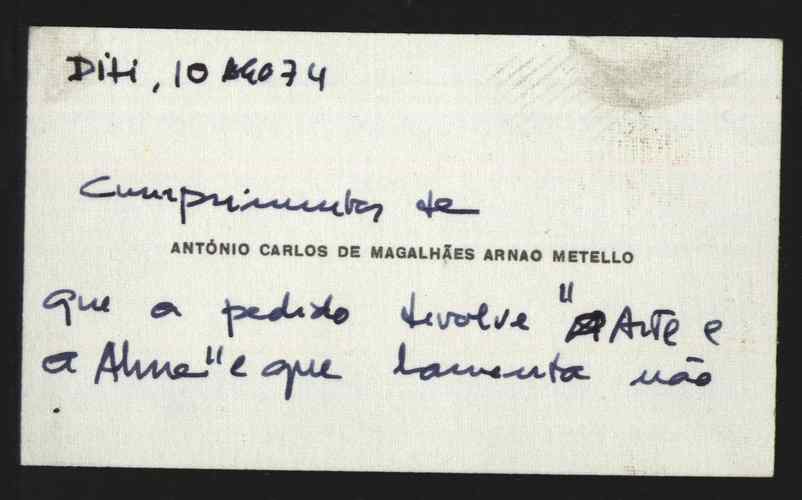 Dili, 10 AGO 74
Cumprimentos de
ANTÓNIO CARLOS DE MAGALHÃES ARNAO METELLO
que a pedido devolve "A Arte e
a Alma" e que lamenta não